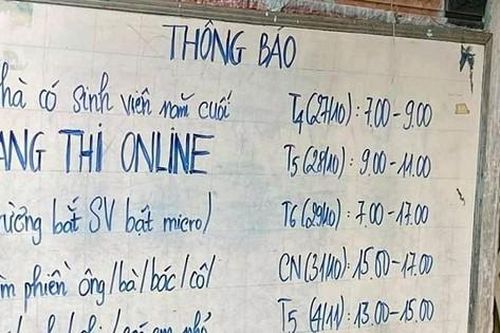 THÔNG BÁO
hà có sinh viên năm cuối T4(27/10): 7.00 - 9.00
ANG THI ONLINE T5(28/10): 9.00 - 11.00
ường bắt SV bật micro) T6(29/10): 7.00 - 17.00
m phiền ông/bà/bác/cô/ CN(31/10): 15.00 - 17.00
T5(4/11): 13.00 - 15.00